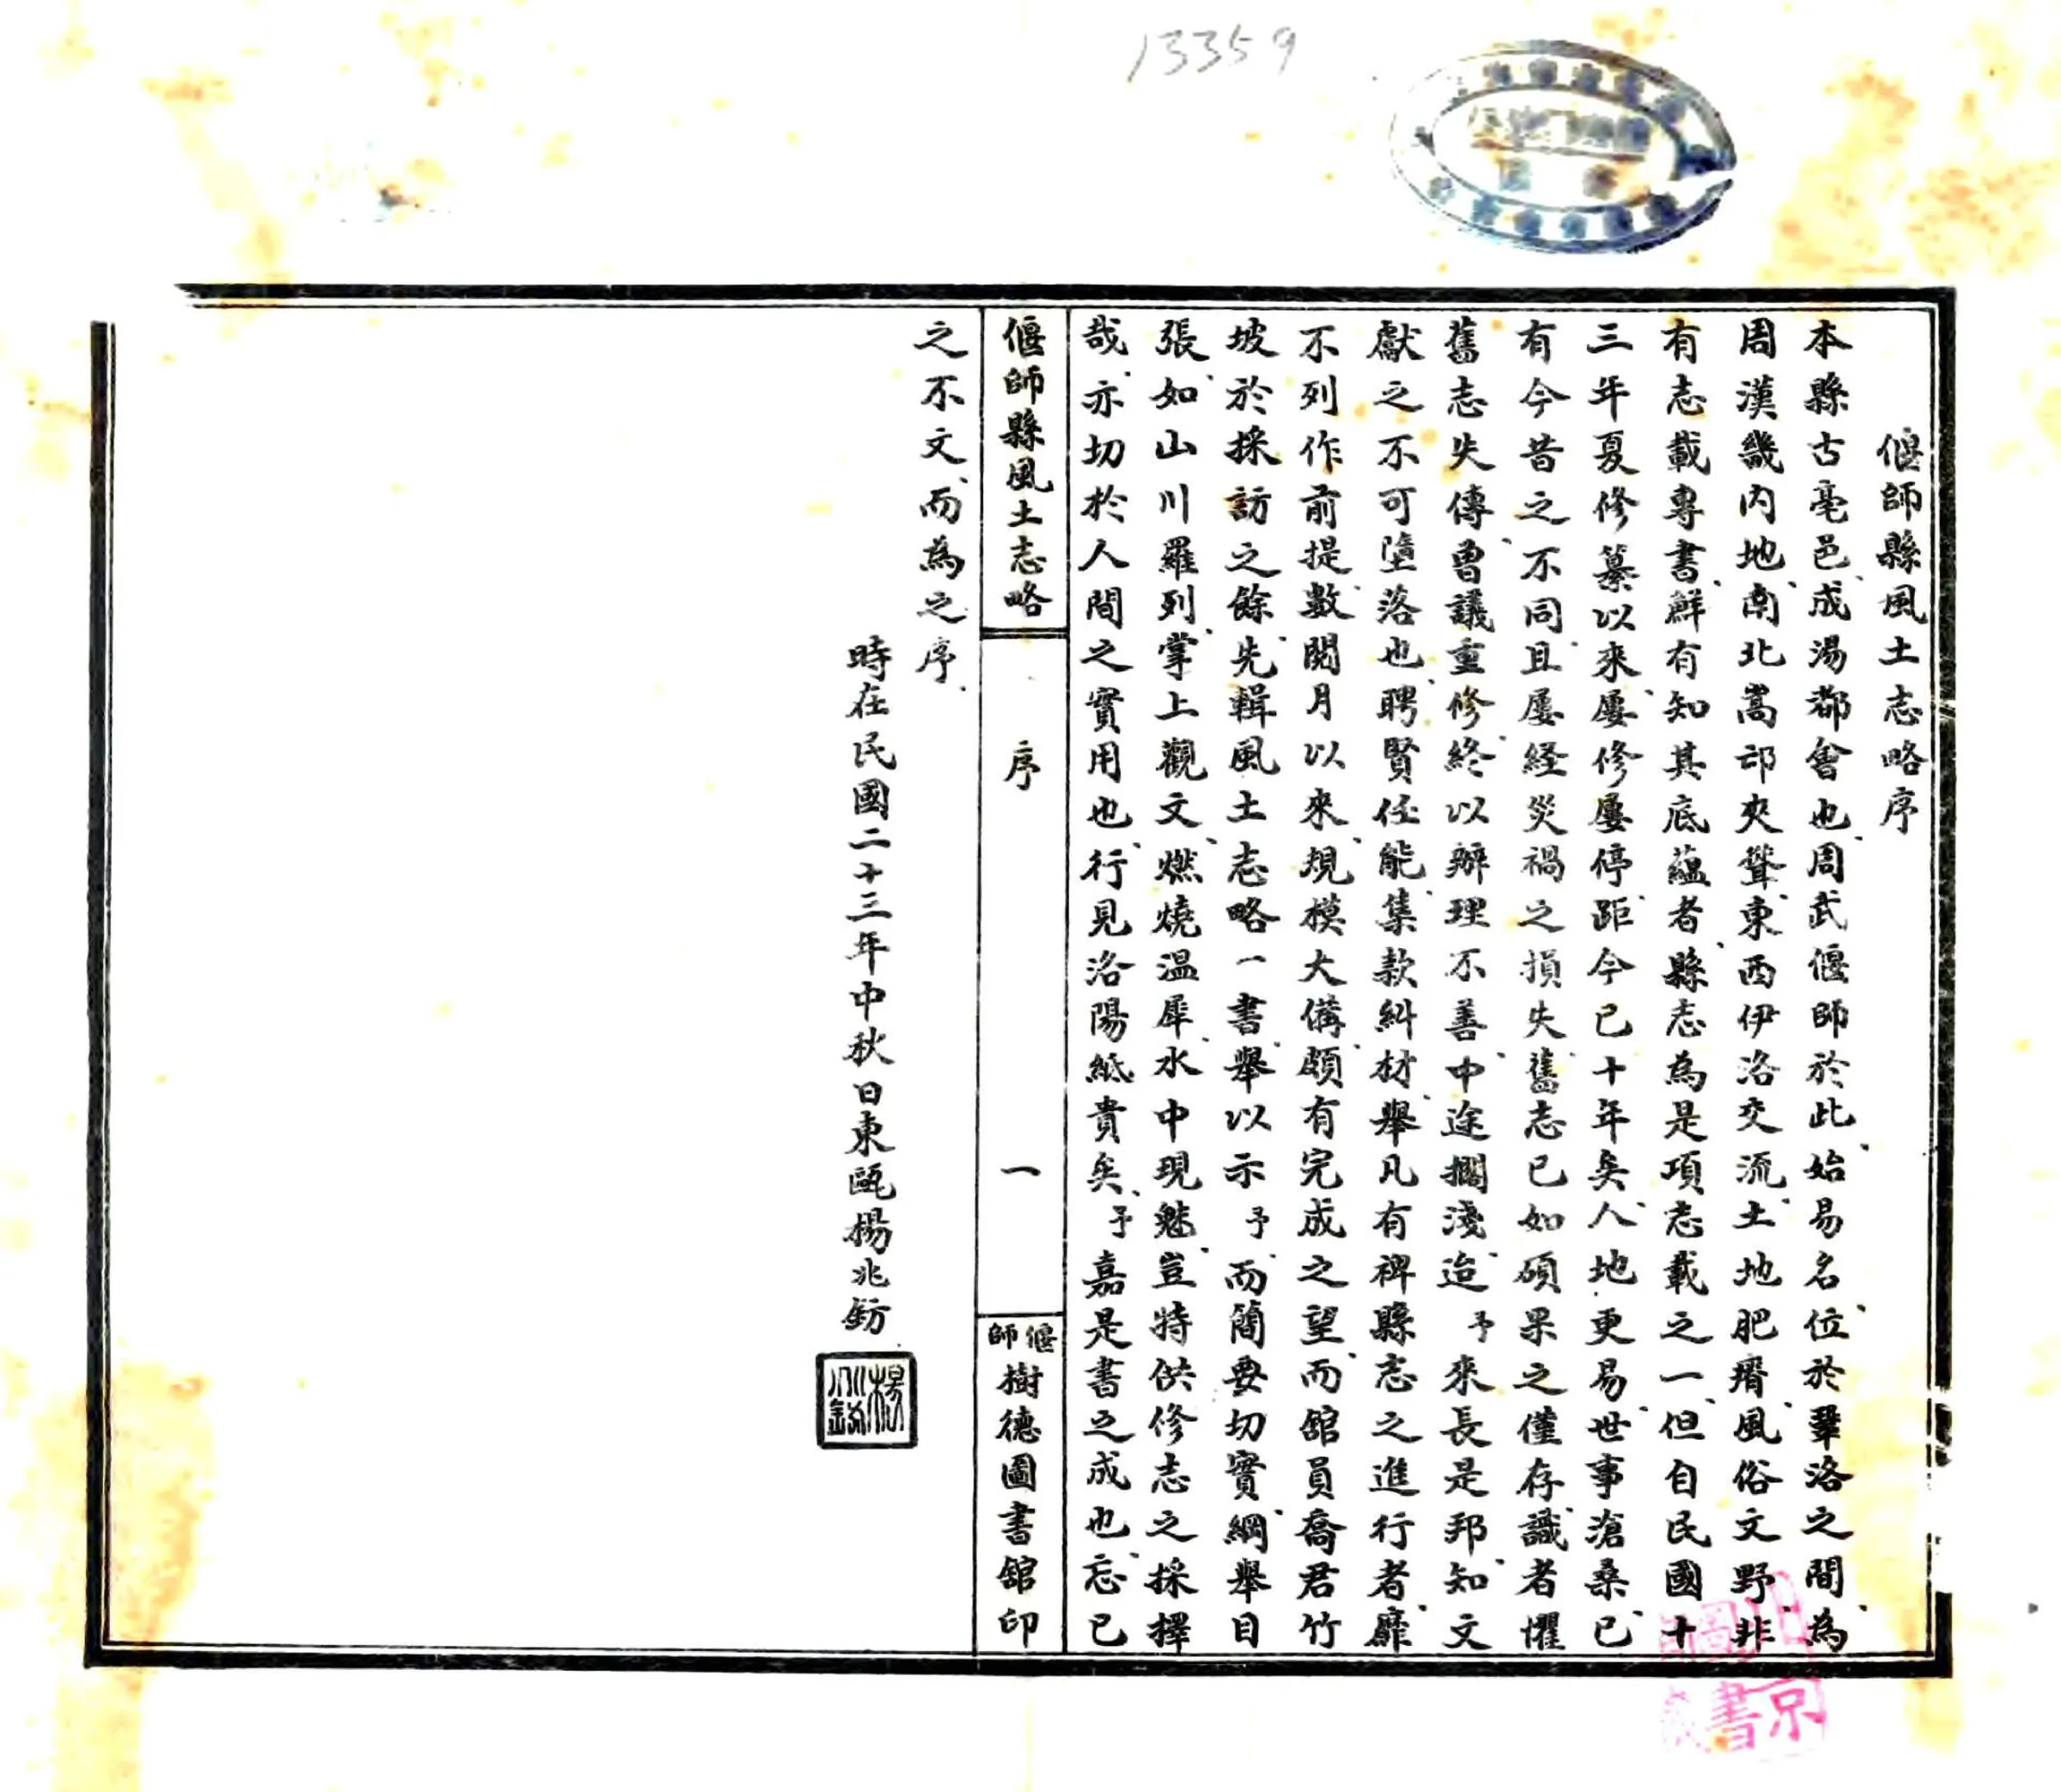 13359
偃師縣風土志略序
本縣古亳邑、成湯都會也、周武偃師於此、始易名、位於鞏洛之間、為
周漢畿内地、南北嵩邙夾聳、東西伊洛交流、土地肥瘠、風俗文野、非
有志載專書、鮮有知其底蘊者、縣志為是項志載之一、但自民國十
三年夏修纂以來、屡修屡停、距今已十年矣、人地更易、世事滄桑、已
有今昔之不同、且屡経災禍之損失、舊志已如碩果之僅存、識者懼
舊志失傳、曾議重修、終以辦理不善、中途擱淺、迨予來長是邦、知文
獻之不可墮落也、聘賢任能、集款糾材、舉凡有裨縣志之進行者、靡
不列作前提、數閱月以來、規模大備、頗有完成之望、而舘員喬君竹
坡於採訪之餘、先輯風土志略一書、舉以示予、而簡要切實、綱舉目
張、如山川羅列、掌上觀文、燃燒温犀、水中現魅、豈特供修志之採擇
哉、亦切於人間之實用也、行見洛陽紙貴矣、予嘉是書之成也、忘已
偃師縣風土志略
序
一
偃師樹德圖書舘印
之不文、而為之序、
時在民國二十三年中秋日東甌楊兆鈁